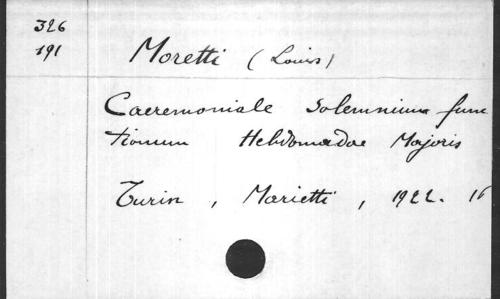 326
191
Moretti (Louis)
Caeremoniale Solemnium func
tionum Hebdomadae Majoris
Turin, Marietti, 1922. 16